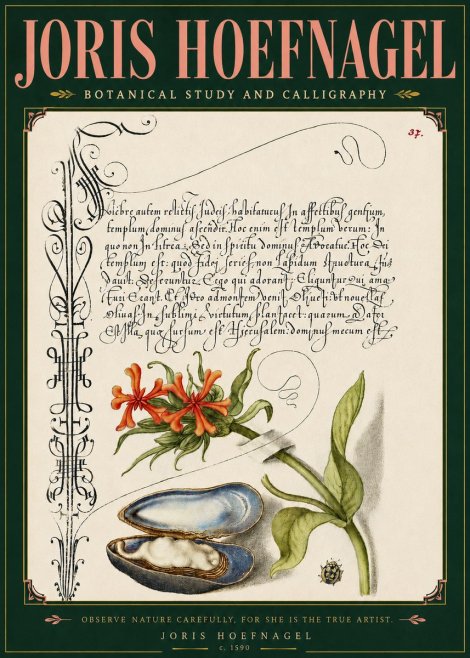 JORIS HOEFNAGEL
BOTANICAL STUDY AND CALLIGRAPHY
37.
autem relictis Judeis habitaturus In affectibus gentium,
templum dominus ascendit. Hoc enim est templum verum: In
quo non In litera, Sed in spiritu dominus Hoc Dei
templum est: quod fidei series non Lapidum
Deseruntur Ergo qui adorant, Eliguntur qui
Et Ideo ad montem venit ut novellas
Olivas In sublimi virtutum plantaret: quarum Mater
Illa, quæ sursum est Hierusalem: dominus mecum est
OBSERVE NATURE CAREFULLY, FOR SHE IS THE TRUE ARTIST.
JORIS HOEFNAGEL
c. 1590